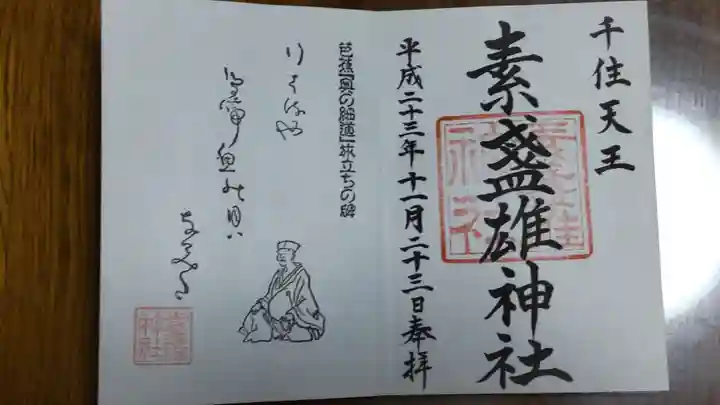 千住天王
素盞雄神社
平成二十三年十一月二十三日奉拝
芭蕉「奥の細道」旅立ちの碑
行はるや
鳥啼魚の目ハ